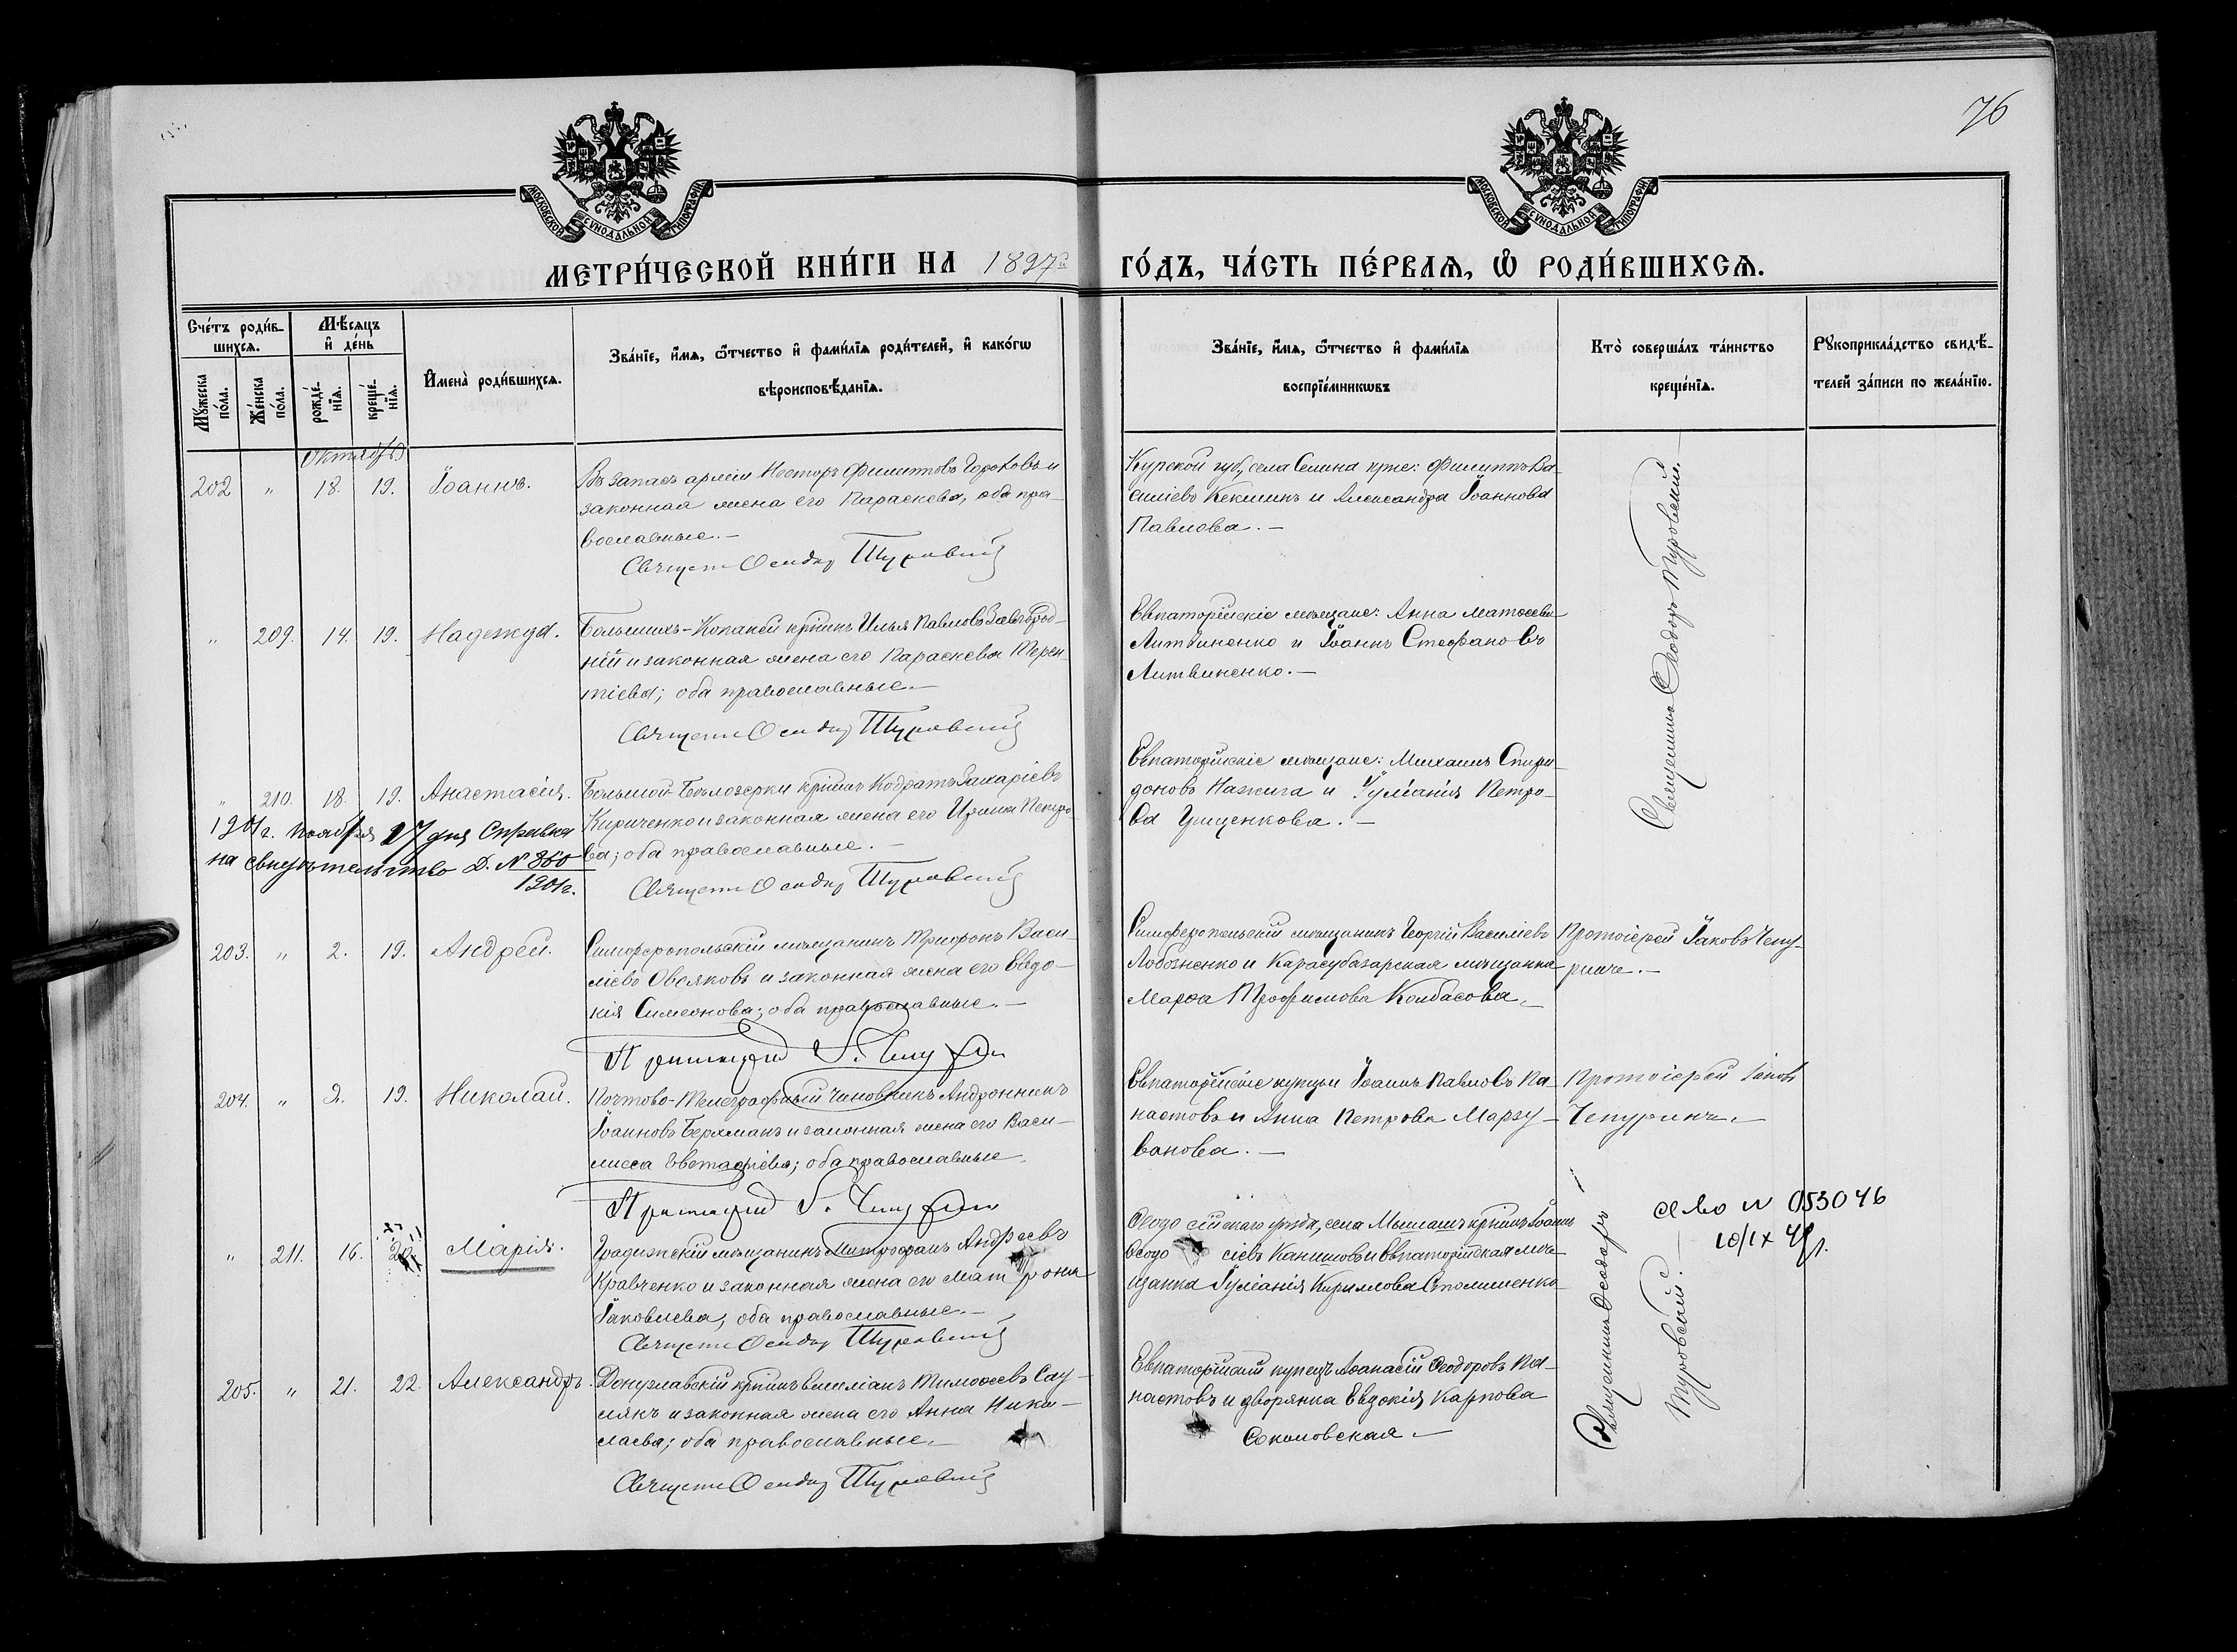 76
МОСКОВСКОЙ СѴНОДАЛЬНОЙ ТИПОГРАФІИ
МОСКОВСКОЙ СѴНОДАЛЬНОЙ ТИПОГРАФІИ
МЕТРИ́ЧЕСКОЙ КНИ́ГИ НА 1897й ГО́ДЪ, ЧА́СТЬ ПЕ́РВАѦ, Ѡ РОДИ́ВШИХСѦ.
Сче́тъ роди́в-
шихсѧ.
Мѣ́сѧцъ
и҆ де́нь
Мꙋ́жеска
по́ла.
Же́нска
по́ла.
рожде́-
нїѧ.
креще́-
нїѧ.
И҆мена̀ роди́вшихсѧ.
Зва́нїе, и҆́мѧ, ѻ҆́тчество и҆ фами́лїѧ роди́телей, и҆ како́гѡ
вѣроисповѣ́данїѧ.
Зва́нїе, и҆́мѧ, ѻ҆́тчество и҆ фами́лїѧ
воспрїе́мникѡвъ
Кто̀ соверша́лъ та́инство
креще́нїѧ.
Рꙋкоприкла́дство свидѣ́-
телей за́писи по жела́нїю.
Октябрь
202 " 18. 19. Іоаннъ.
Въ запасъ арміи Несторъ Филиттовъ и
законная жена его Параскева, оба пра-
вославные.-
Священ Ѳеодор Туровский
Курской губ., села Селина кре: Филиппъ Ва-
силіевъ Кекшинъ и Александра Іоаннова
Павлова.-
Священникъ Ѳеодоръ Туровский.
" 209. 14. 19. Надежда.
Большихъ-Копаней крінинъ Илья Павловъ Завгород-
ній и законная жена его Параскева Терен-
тіева; оба православные.-
Священ Ѳеодор Туровский
Евпаторійскіе мѣщане: Анна Матѳеева
Литвиненко и Іоаннъ Стефановъ
Литвиненко.-
" 210. 18. 19. Анастасія.
Большой-Бѣлозерки крінинъ Кодратъ Захаріевъ
Кириченко и законная жена его Ирина Петро-
ва; оба православные.-
Священ Ѳеодор Туровский
1901г. Ноября 17 дня Справка
на свидѣтельство Д. № 860
1901г.
Евпаторійскіе мѣщане: Михаилъ Спири-
доновъ Нажига и Іуліанія Петро-
ва Грищенкова.-
203. " 2. 19. Андрей.
Симферопольскій мѣщанинъ Трифонъ Васи-
ліевъ Овсяковъ и законная жена его Евдо-
кія Симеонова; оба православные.-
Протоіерей І. Чепурин
Симферопольскій мѣщанинъ Георгій Василіевъ
Лобозненко и Карасубазарская мѣщанка
Марѳа Трофимова Колбасова.-
Протоіерей Іаковъ Чепу-
ринъ.-
204. " 2. 19. Николай.
Почтово-Телеграфный Чиновникъ Андронникъ
Іоанновъ Бераманъ и законная жена его Васи-
лисса Евстафіева; оба православные.
Протоіерей І. Чепурин
Евпаторійскіе купцы Іоаннъ Павловъ Па-
настовъ и Анна Петрова Маргу-
ванова.-
Протоіерей Іаковъ
Чепуринъ.-
" 211. 16. 20. Марія.
Градижскій мѣщанинъ Митрофанъ Андреевъ
Кравченко и законная жена его Матрона
Іаковлева, оба православные.-
Священ Ѳеодор Туровский
Ѳеодосійскаго уѣзда, села крінинъ Іоаннъ
Ѳеодосіевъ Канишовъ и Евпаторійская мѣ-
щанка Іуліанія Кириллова
Священникъ Ѳеодоръ
Туровский.
св-во № 053046
10/IX 41г.
205. " 21. 22. Александръ.
Донузлавскій крінинъ Емиліанъ Тимоѳеевъ Сау-
лякъ и законная жена его Анна Нико-
лаева; оба православные.-
Священ Ѳеодор Туровский
Евпаторійскій купецъ Аѳанасій Ѳеодоровъ Па-
настовъ и дворянка Евдокія Карпова
Соколовская.-